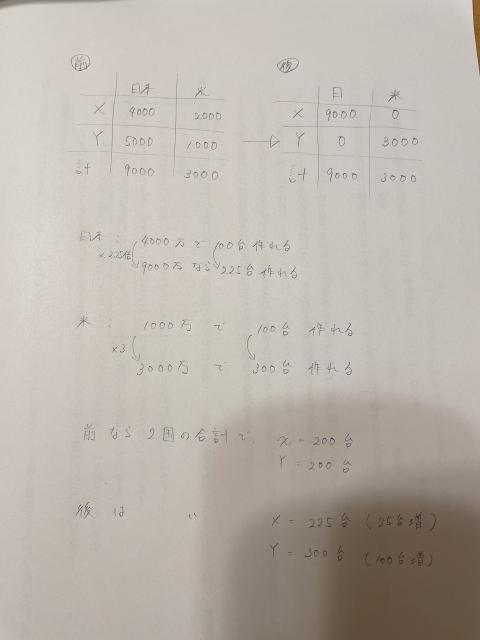 前 後
日本 米 日 米
X 4000 2000 X 9000 0
Y 5000 1000 → Y 0 3000
計 9000 3000 計 9000 3000
日本: 4000万で 100台作れる
×2.25倍 9000万なら 225台作れる
米: 1000万で 100台作れる
×3
3000万で 300台作れる
前なら2国の合計で、 x = 200台
Y = 200台
後は 〃 X = 225台 (25台増)
Y = 300台 (100台増)